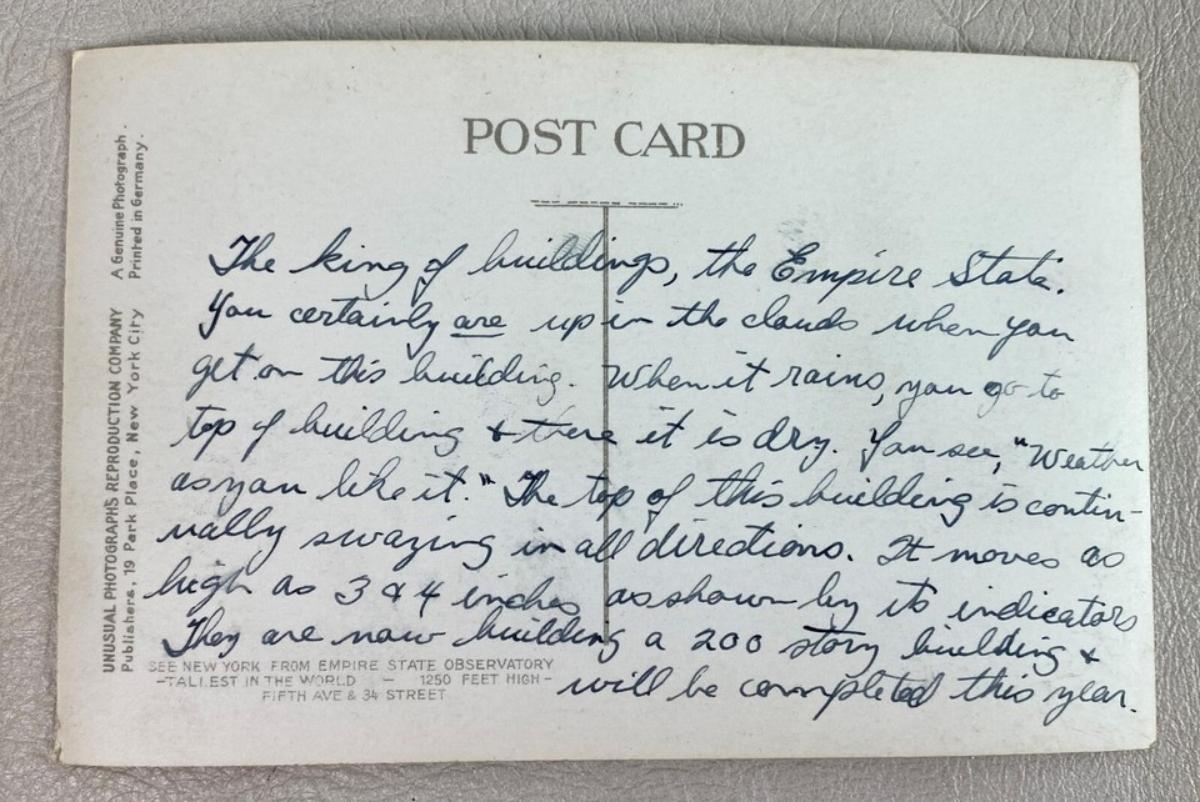 POST CARD
The king of buildings, the Empire State.
You certainly are up in the clouds when you
get on this building. When it rains, you go to
top of building & there it is dry. You see, "Weather
as you like it." The top of this building is contin-
ually swazing in all directions. It moves as
high as 3 & 4 inches as shown by its indicators
They are now building a 200 story building &
will be completed this year.
SEE NEW YORK FROM EMPIRE STATE OBSERVATORY
-TALLEST IN THE WORLD - 1250 FEET HIGH-
FIFTH AVE & 34 STREET
UNUSUAL PHOTOGRAPHS REPRODUCTION COMPANY A Genuine Photograph.
Publishers, 19 Park Place, New York City Printed in Germany.